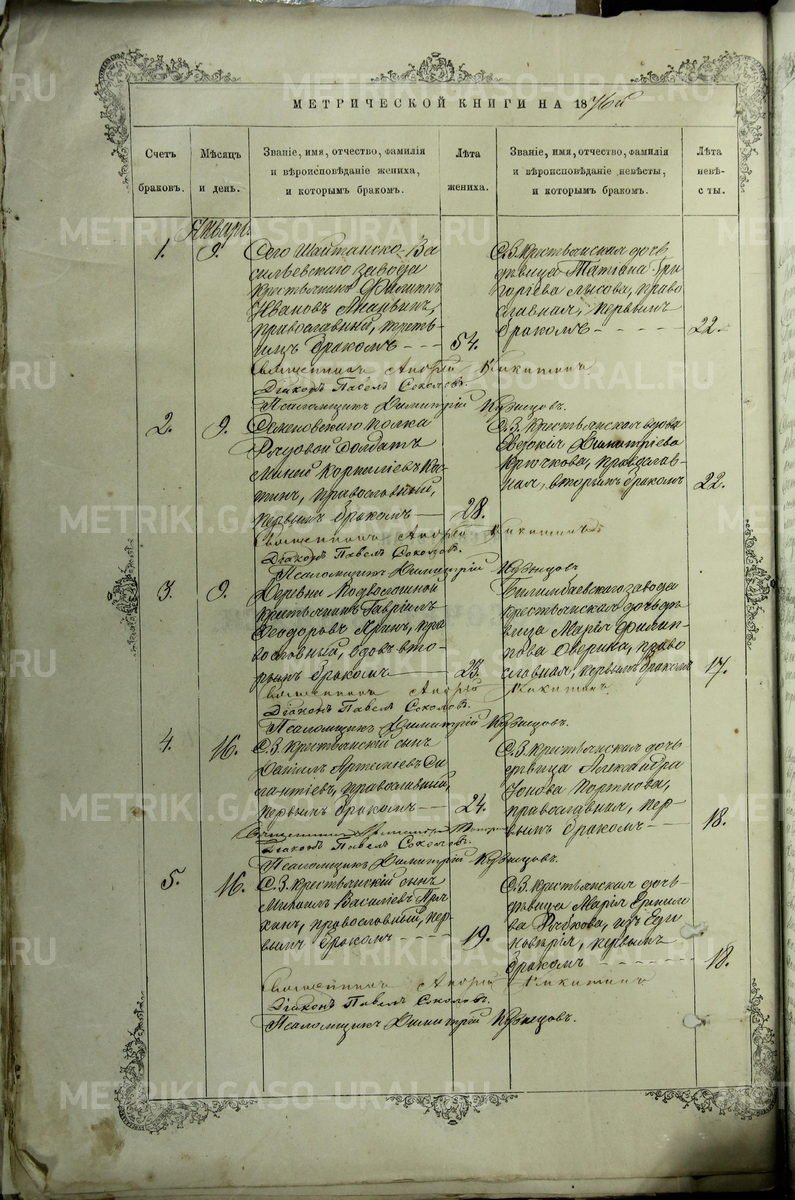 МЕТРИЧЕСКОЙ КНИГИ НА 1876й
Счетъ браковъ.
Мѣсяцъ и день.
Званіе, имя, отчество, фамилія и вѣроисповѣданіе жениха, и которымъ бракомъ.
Лѣта жениха.
Званіе, имя, отчество, фамилія и вѣроисповѣданіе невѣсты, и которымъ бракомъ.
Лѣта невѣсты.
Январь
1. 9. Сего Шайтанско-Ва
сильевскаго завода
крестьянинъ Филиппъ
Ивановъ Ананьинъ,
православный, треть-
имъ бракомъ - - - 54.
С.З. крестьянская дочь
дѣвица Татіана Гри
горіева Лысова, право
славная, первымъ
бракомъ - - - - - 22.
Священникъ Андрей Никитинъ
Діаконъ Павелъ Соколовъ.
Псаломщикъ Димитрій Кузнецовъ.
2. 9. полка
Рядовой Солдатъ
Корниліевъ
православный,
первымъ бракомъ 28.
С.З. крестьянская вдова
Евдокія Димитріева
Крючкова, православ-
ная, вторымъ бракомъ 22.
Священникъ Андрей Никитинъ
Діаконъ Павелъ Соколовъ.
Псаломщикъ Димитрій Кузнецовъ
3. 9. Деревни Подволошной
крестьянинъ Гавріилъ
Ѳеодоровъ Яринъ, пра
вославный, вдовъ вто-
рымъ бракомъ 23.
Билимбаевскаго завода
крестьянская дочь дѣ
вица Марія Филип-
пова право
славная, первымъ бракомъ 17.
Священникъ Андрей Никитинъ.
Діаконъ Павелъ Соколовъ.
Псаломщикъ Димитрій Кузнецовъ.
4. 16. С.З. крестьянскій сынъ
Даніилъ Артеміевъ Си
лантіевъ, православный,
первымъ бракомъ - - 24.
С.З. крестьянская дочь
дѣвица Александра
Іонова
православная, пер-
вымъ бракомъ 18.
Священникъ
Діаконъ Павелъ Соколовъ.
Псаломщикъ Димитрій Кузнецовъ.
5. 16. С.З. крестьянскій сынъ
Михаилъ Василіевъ
православный, пер-
вымъ бракомъ - - - - 19.
С.З. крестьянская дочь-
дѣвица Марія
Рябкова, изъ Еди
новѣрія, первымъ
бракомъ - - - - - - 18.
Священникъ Андрей Никитинъ
Діаконъ Павелъ Соколовъ.
Псаломщикъ Димитрій Кузнецовъ.
METRIKI.GASO-URAL.RU